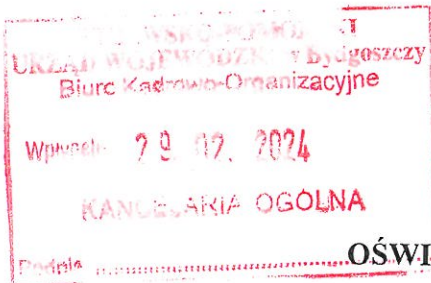 URZĄD WOJEWÓDZKI w Bydgoszczy
Biuro Kadrowo-Organizacyjne
Wpłynęło 29. 02. 2024
KANCELARIA OGÓLNA
Podpis ........................ OŚWI